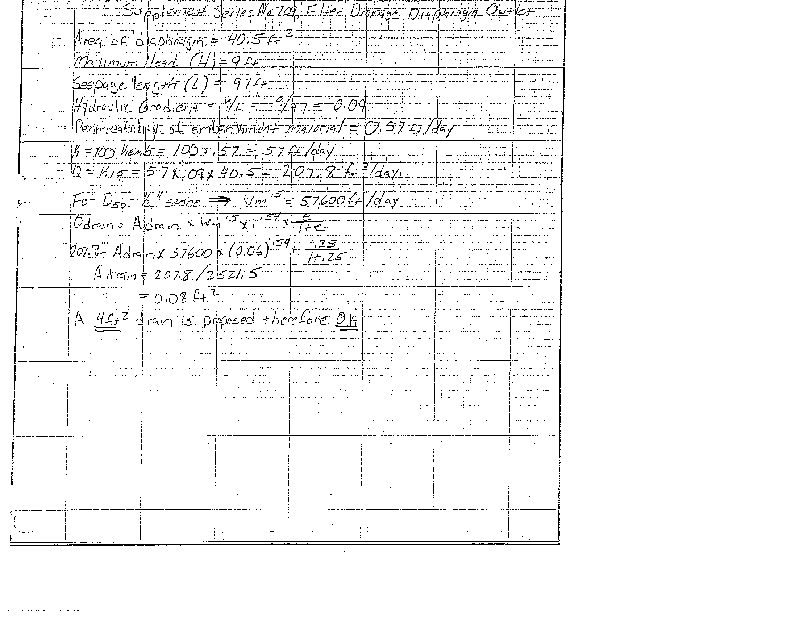 Supplement Series No 709, Filter Drainage Diaphragm Outlet
Area of diaphragm = 40.5 ft²
Maximum head (H) = 9 ft
Seepage length (L) = 97 ft
Hydraulic Gradient = H/L = 9/97 = 0.09
Permeability of embankment material = 0.57 ft/day
K = 100 × = 100 x .57 = 57 ft/day
Q = KiA = 57 x .09 x 40.5 = 207.8 ft³/day
For D50 = 1/2" stone ⇒ Wm^.5 = 57600 ft/day
Qdrain = Adrain x Wm^.5 x i^.54 x e/1+e
207.8 = Adrain x 57600 x (0.06)^.54 x .25/1+.25
Adrain = 207.8/2521.5
= 0.08 ft²
A 4 ft² drain is proposed therefore OK